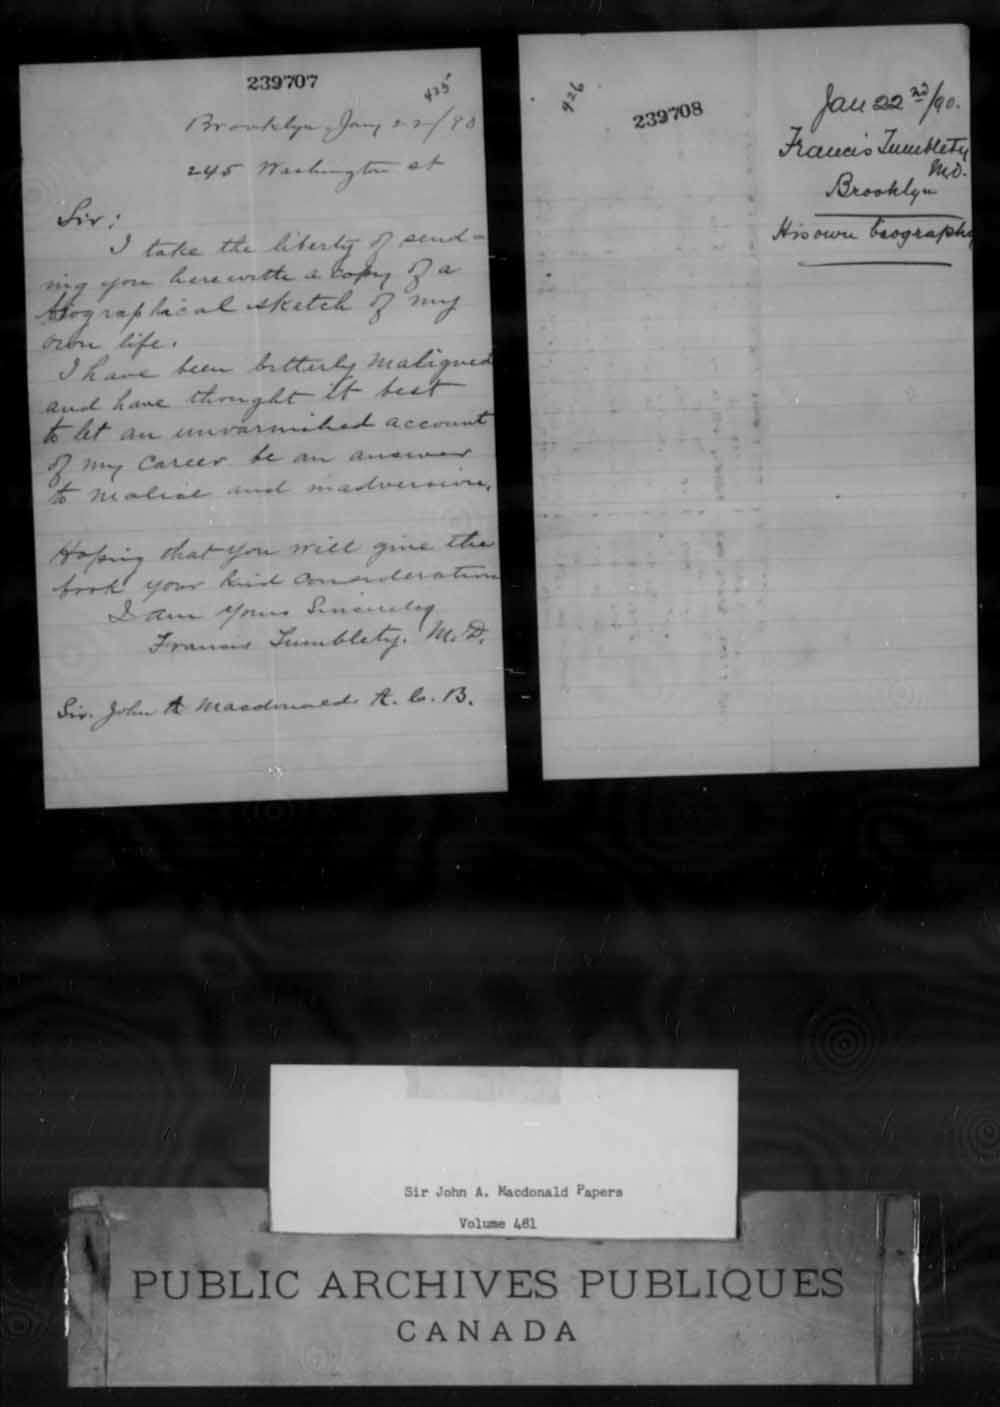 239707
425
Brooklyn Jany 22/90
245 Washington st
Sir:
I take the liberty of send-
ing you herewith a copy of a
biographical sketch of my
own life.
I have been bitterly maligned
and have thought it best
to let an unvarnished account
of my career be an answer
to malice and
Hoping that you will give the
book your kind consideration
I am yours Sincerely
Francis Tumblety. M.D.
Sir. John A Macdonald. K. C. B.
426
239708
Jan 22nd/90.
Francis Tumblety
M.D.
Brooklyn
His own biography
Sir John A. Macdonald Papers
Volume 481
PUBLIC ARCHIVES PUBLIQUES
CANADA